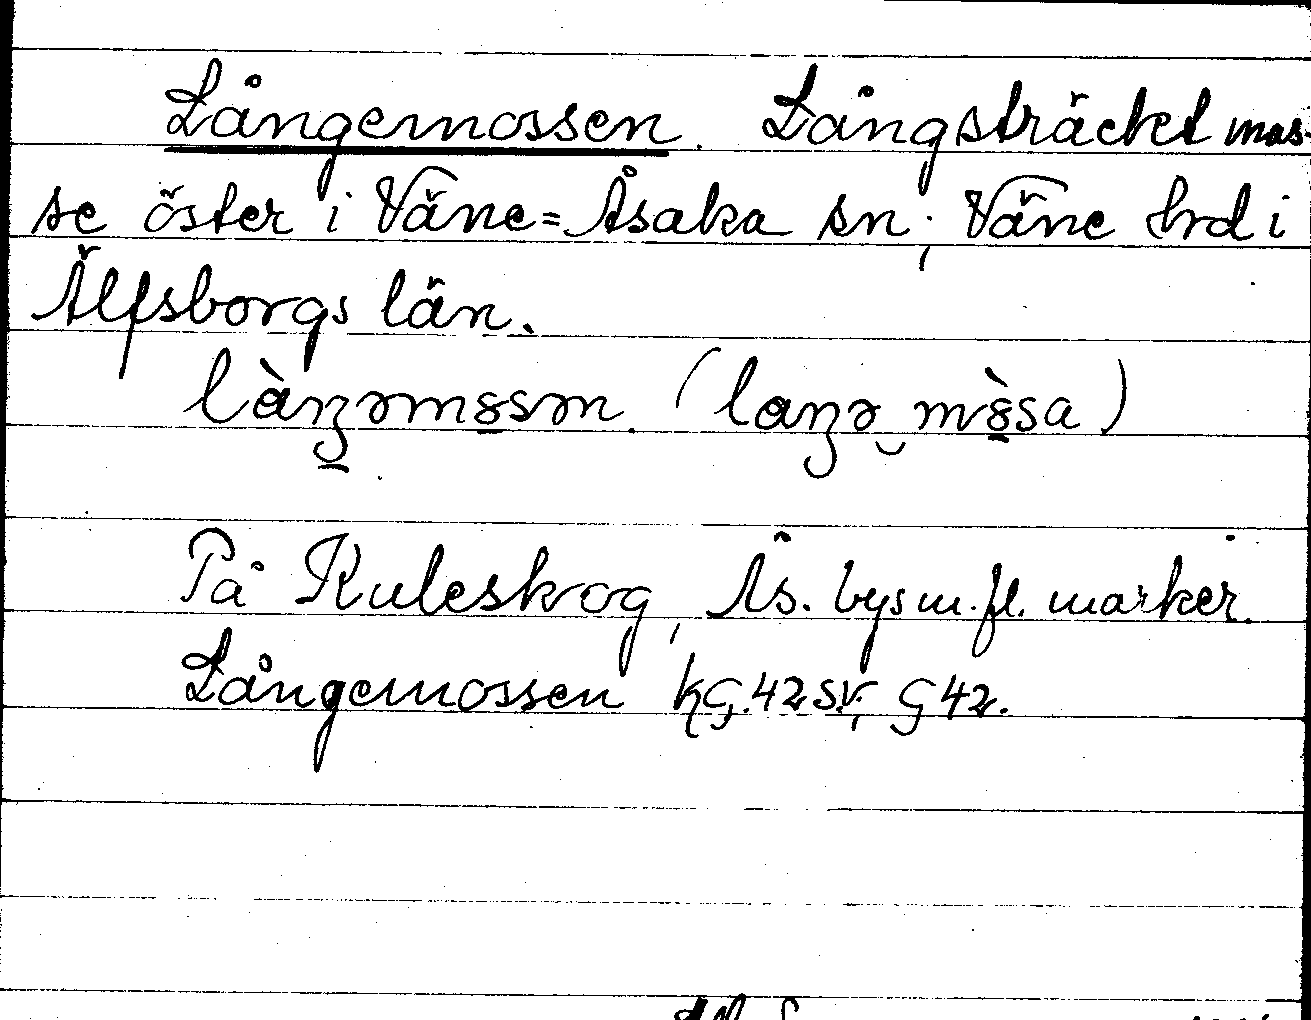 Långemossen. Långsträcket mos-
se öster i Väne=Åsaka sn; Väne hrd i
Älfsborgs län.
làŋəmȣsən. (laŋə‿mȣ̀sa)
På Kuleskog, Ås. bys m. fl. marker.
Långemossen kG.42SV, G42.